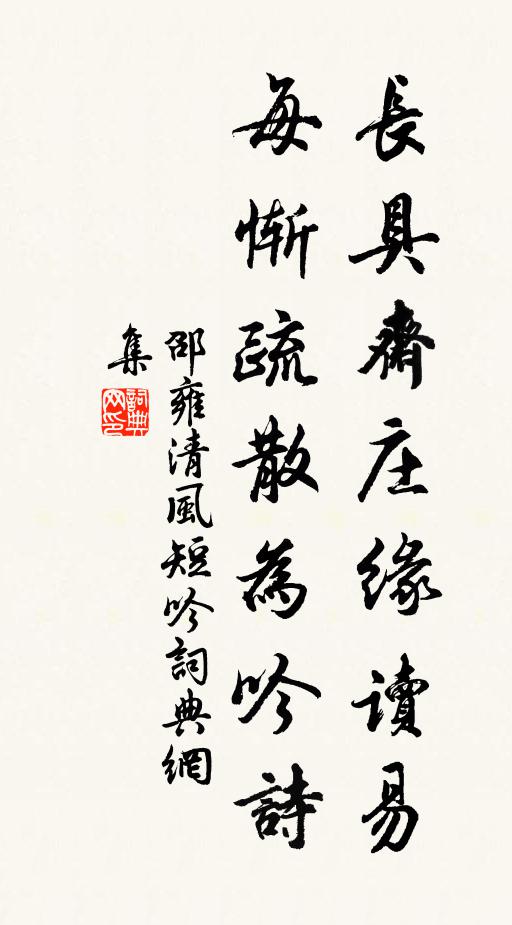 長具齋庄緣读易
每慚疏散為吟詩
邵雍清風短吟詞典網
集
詞典网印